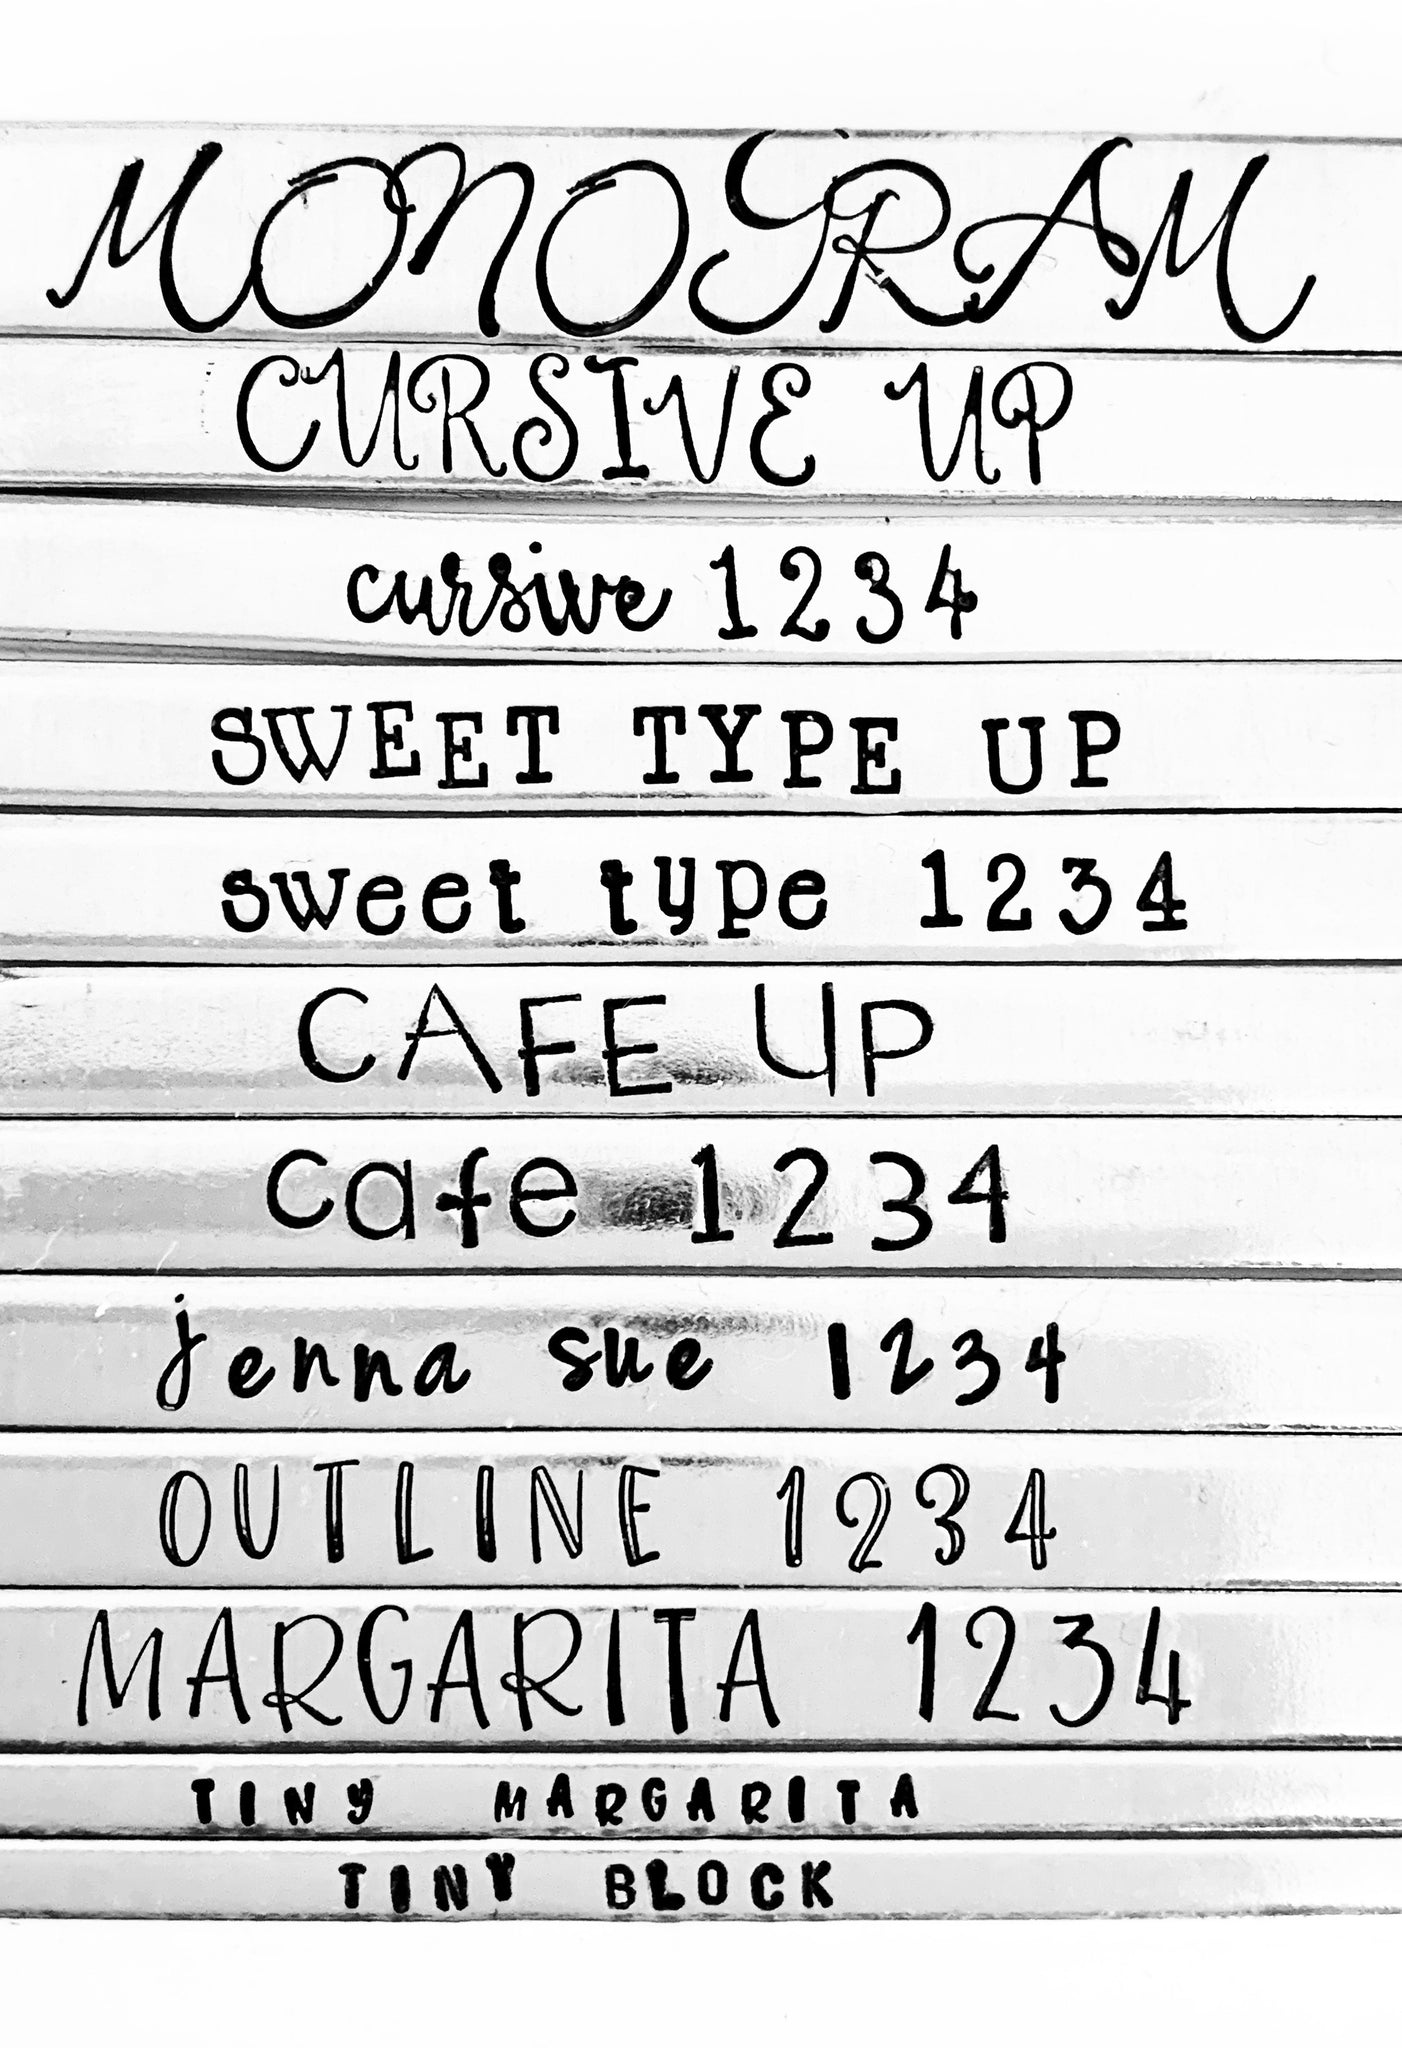 MONOGRAM
CURSIVE UP
cursive 1234
SWEET TYPE UP
sweet type 1234
CAFE UP
cafe 1234
jenna sue 1234
OUTLINE 1234
MARGARITA 1234
TINY MARGARITA
TINY BLOCK